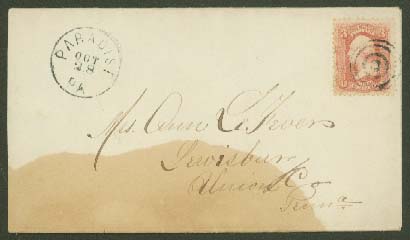 PARADISE
OCT
28
PA
Mrs. Ann LeFever
Lewisburg
Union Co
Penna